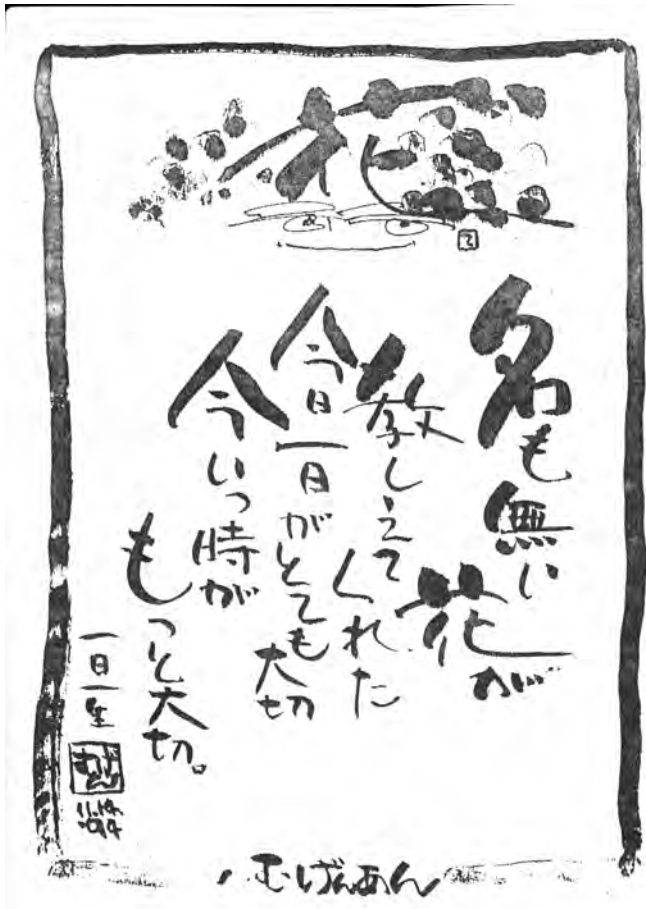 花
名も無い
花が
教しえて
くれた
今日一日がとても
大切
今いっ時が
もっと大切。
一日一生
むげん
むげんあん